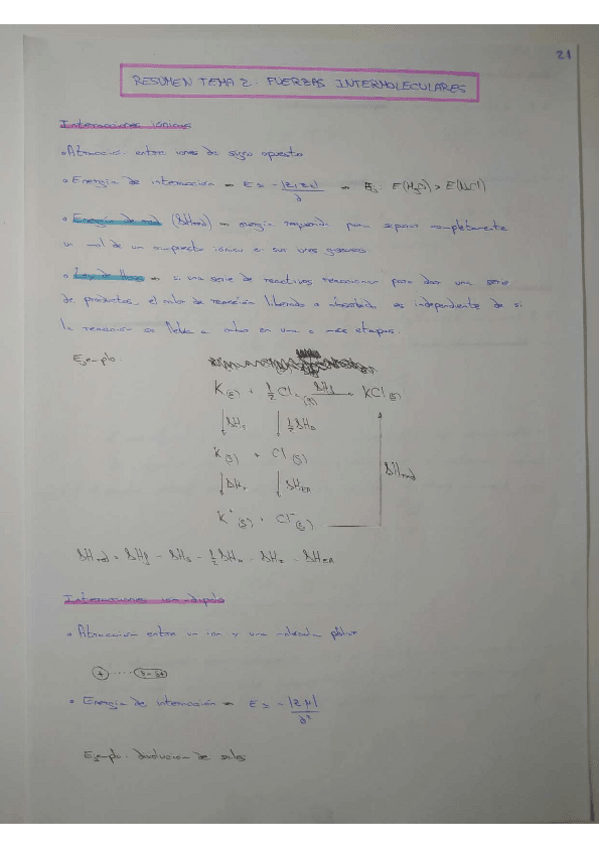 21
RESUMEN TEMA 2. FUERZAS INTERMOLECULARES
Interacciones iónicas
• Atracción entre iones de signo opuesto
• Energía de interacción → E ∝ -|z₁z₂|/d → Ej:
• Energía de red (ΔHred) → energía requerida para separar completamente
un mol de un compuesto iónico en sus iones gaseosos.
• Ley de Hess → si una serie de reactivos reaccionan para dar una serie
de productos, el calor de reacción liberado o absorbido es independiente de si
la reacción se lleva a cabo en una o más etapas.
Ejemplo:
K(s) + ½ Cl₂(g) ΔHf KCl(s)
↓ΔHs ↓½ΔHD
K(g) + Cl(g) ΔHred
↓ΔHI ↓ΔHEA
K⁺(g) + Cl⁻(g)
ΔHred = ΔHf - ΔHs - ½ΔHD - ΔHI - ΔHEA
Interacciones ion-dipolo
• Atracción entre un ion y una molécula polar
• Energía de interacción → E ∝ -|z μ|/d²
Ejemplo: disolución de sales